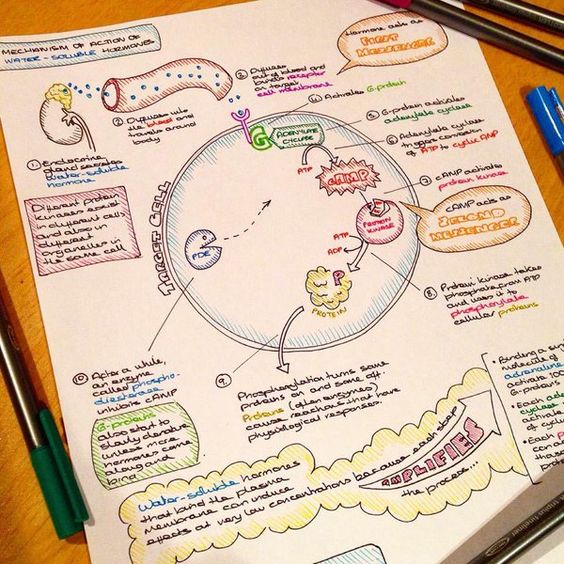 MECHANISM OF ACTION OF
WATER-SOLUBLE HORMONES
1. Endocrine
gland secretes
water-soluble
hormone
2. Diffuses into
the blood and
travels around
body
3. Diffuses
out of blood and
binds receptor
on target
cell membrane
Hormone acts as
FIRST
MESSENGER
4. Activates G-protein
G
ADENYLATE
CYCLASE
5. G-protein activates
adenylate cyclase
6. Adenylate cyclase
triggers conversion
of ATP to cyclic AMP
ATP
CAMP
7. cAMP activates
protein kinase
cAMP acts as
SECOND
MESSENGER
PROTEIN
KINASE
ATP
ADP
8. Protein kinase takes
phosphate from ATP
and uses it to
phosphorylate
cellular proteins
P
PROTEIN
TARGET CELL
PDE
Different protein
kinases exist
in different cells
and also in
different
organelles in
the same cell
9.
Phosphorylation turns some
proteins on and some off.
Proteins (often enzymes)
cause reactions that have
physiological responses.
10. After a while,
an enzyme
called phospho-
diesterase
inhibits cAMP
G-proteins
also start to
slowly denature
unless more
hormones come
along and
bind
Water-soluble hormones
that bind the plasma
membrane can induce
effects at very low concentrations because each step
AMPLIFIES
the process...
• Binding a
molecule of
adrenaline
activate 100
G-proteins
• Each
cyclase
activate
of cyclic
• Each
triplus fineliner